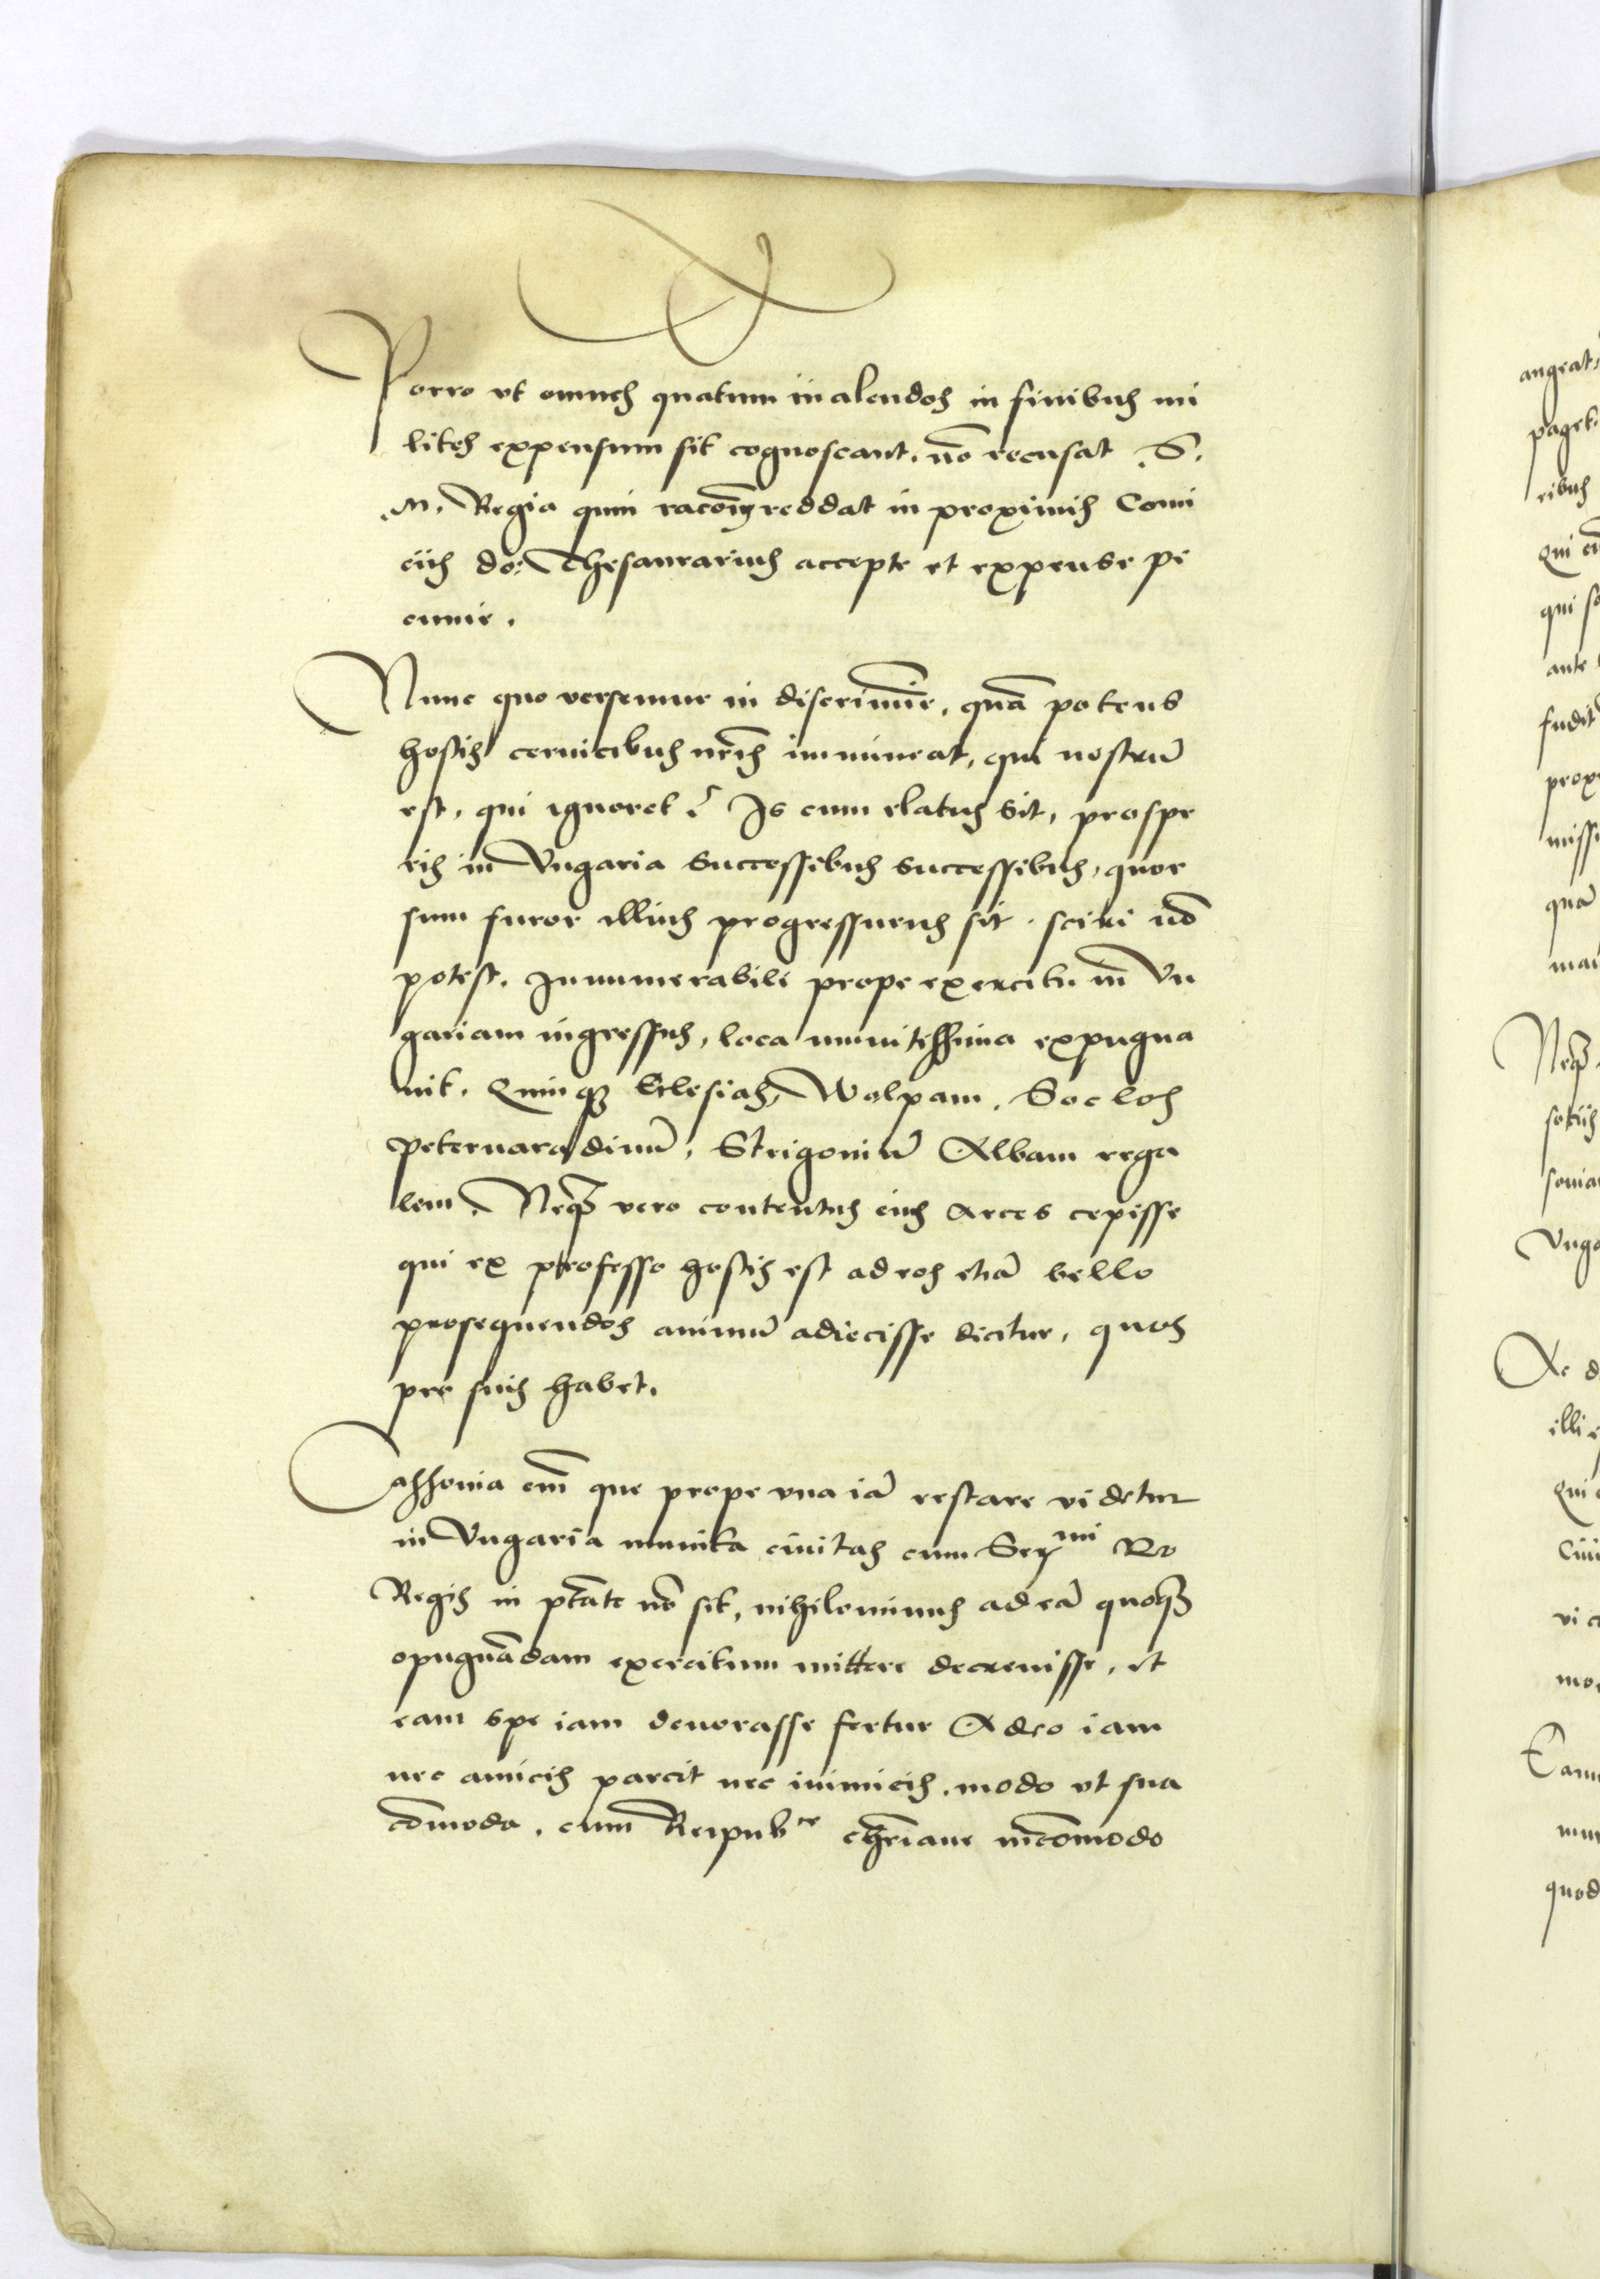 Porro vt omnes quatum in alendos in finibus mi
lites expensum sit cognoscant, nō recusat .S.
.M. Regia quin racōm̄ reddat in proximis Comi
ciis do: Thesaurarius accepte et expense pe
cunie.
Nunc quo versemur in discrimīe, quā potens
hostis ceruicibus nr̄is immineat, qui nostrū
est, qui ignoret? Is cum elatus sit, prospe
ris in Vngaria successibus successibus, quor
sum furor illius progressurus sit. sciri nō
potest. Innumerabili prope exercitu in Vn
gariam ingressus, loca munitissima expugna
uit. Quinqꝫ Eclesias, Walpam. Soclos
peteruaradinū, Strigoniū Albam rega
lem. Neqꝫ vero contentus eius Arces cepisse
qui ex professo hostis est ad eos etiā bello
prosequendos animū adiecisse dicitur, quos
pro suis habet.
Cassouia em̄ que prope vna iā restare videtur
in Vngaria munita ciuitas cum Serᵐⁱ Ro
Regis in ptāte nō sit, nihilominus ad eā quoqꝫ
opugnādam exercitum mittere decreuisse, et
eam spe iam deuorasse fertur Adeo iam
nec amicis parcit nec inimicis. modo vt sua
cōmoda. cum Reipubᶜᵉ chr̄iane incōmodo
angeat,
paget.
ribus
qui so
ante
fudit
missi
quā
Neqꝫ
Ac
illi
Qui
quod